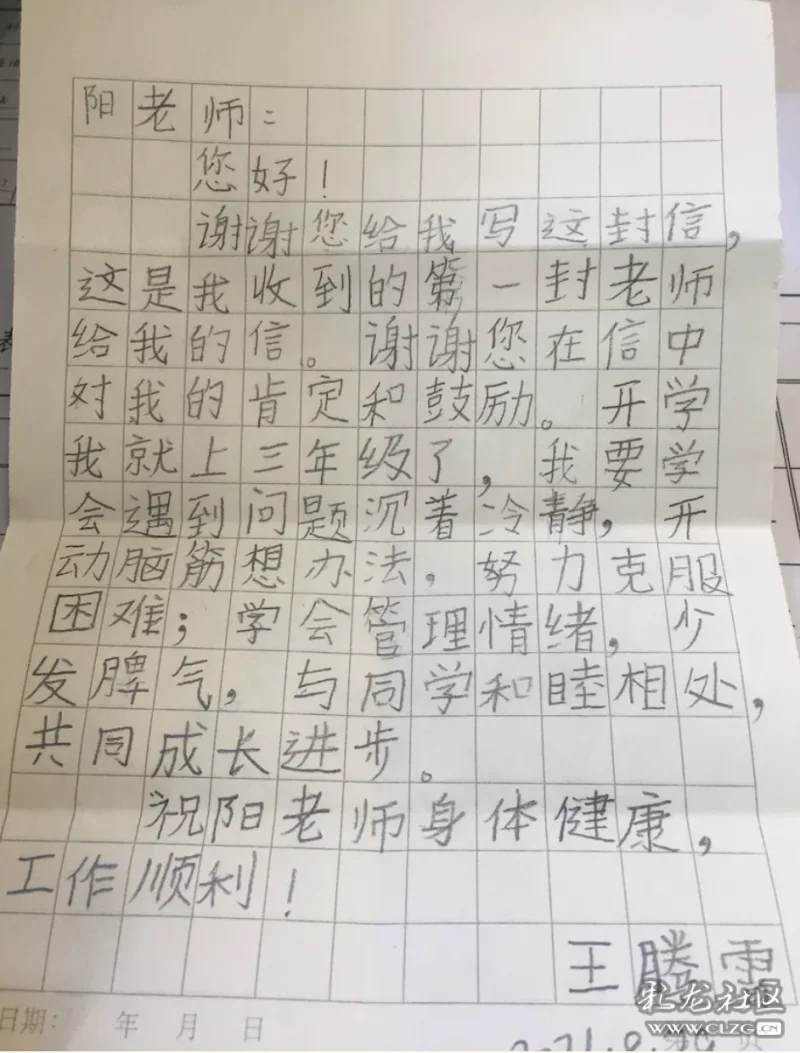 阳老师：
您好！
谢谢您给我写这封信，
这是我收到的第一封老师
给我的信。谢谢您在信中
对我的肯定和鼓励。开学
我就上三年级了，我要学
会遇到问题沉着冷静，开
动脑筋想办法，努力克服
困难；学会管理情绪，少
发脾气，与同学和睦相处，
共同成长进步。
祝阳老师身体健康，
工作顺利！
王腾
日期： 年 月 日
第 页
社区
WWW.CLZG.CN